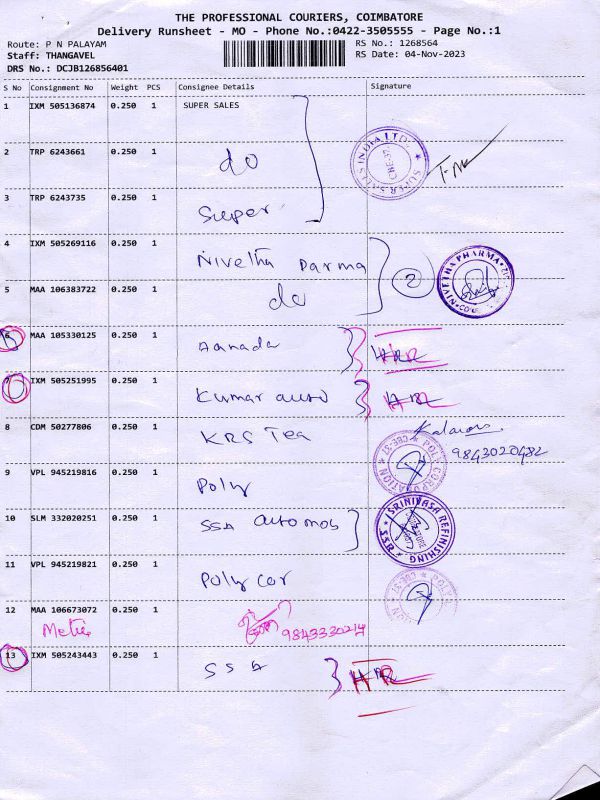 THE PROFESSIONAL COURIERS, COIMBATORE
Delivery Runsheet - MO - Phone No.:0422-3505555 - Page No.:1
Route: P N PALAYAM
RS No.: 1268564
Staff: THANGAVEL
RS Date: 04-Nov-2023
DRS No.: DCJB126856401
S No Consignment No Weight PCS Consignee Details Signature
1 IXM 505136874 0.250 1 SUPER SALES
2 TRP 6243661 0.250 1 do
SUPER SALES INDIA LTD. CBE-37
3 TRP 6243735 0.250 1 Super
4 IXM 505269116 0.250 1 Nivetha Parma
2
NIVETHA PHARMA
5 MAA 106383722 0.250 1 do
6 MAA 105330125 0.250 1 Aanada
7 IXM 505251995 0.250 1 Kumar auto
8 CDM 50277806 0.250 1 KRS Tea
9843020482
9 VPL 945219816 0.250 1 Poly
CORPORATION CBE-37
10 SLM 332020251 0.250 1 SSA automob
SRINIVASA REFINISHING
11 VPL 945219821 0.250 1 Poly cor
12 MAA 106673072 0.250 1
9843330214
13 IXM 505243443 0.250 1 SSA